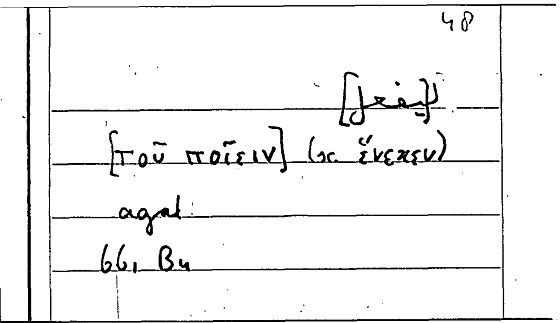 48
[τοῦ ποῖειν] (sc ἕνεκεν)
agal
66, B4